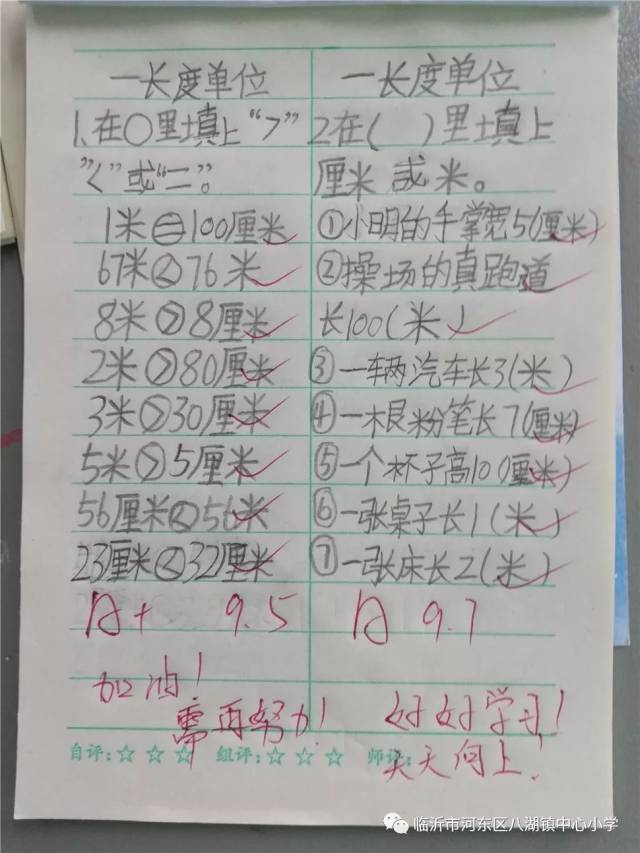 一长度单位
1、在○里填上“>”
”<”或“=”。
1米=100厘米
67米<76米
8米>8厘米
2米>80厘米
3米>30厘米
5米>5厘米
56厘米<56米
23厘米<32厘米
A+ 9.5
加油!
需再努力!
一长度单位
2在( )里填上
厘米或米。
①小明的手掌宽5(厘米)
②操场的真跑道
长100(米)
③一辆汽车长3(米)
④一根粉笔长7(厘米)
⑤一个杯子高10(厘米)
⑥一张桌子长1(米)
⑦一张床长2(米)
A 9.7
好好学习!
天天向上!
自评:☆ ☆ ☆ 组评:☆ ☆ ☆ 师评:
临沂市河东区八湖镇中心小学